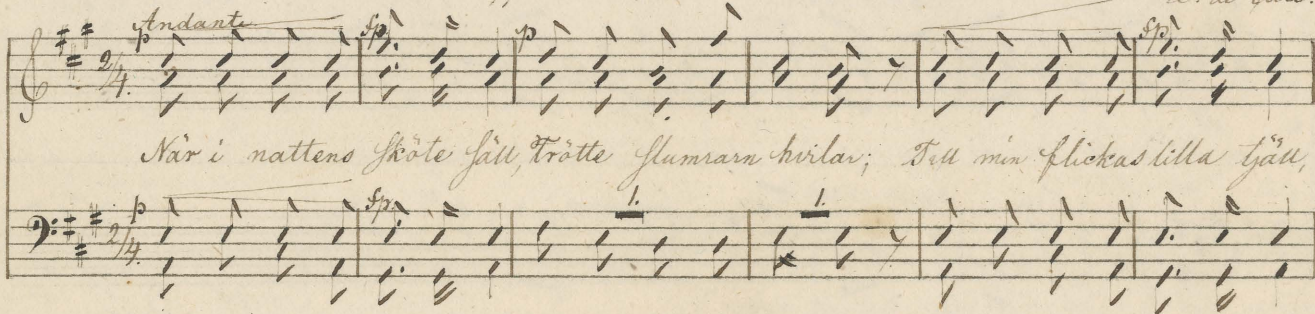 Andante
p fp. p fp.
2/4.
När i nattens sköte säll, Trötte slumrarn hvilar; Till min flickas lilla tjäll,
p fp. 1. 1.
2/4.